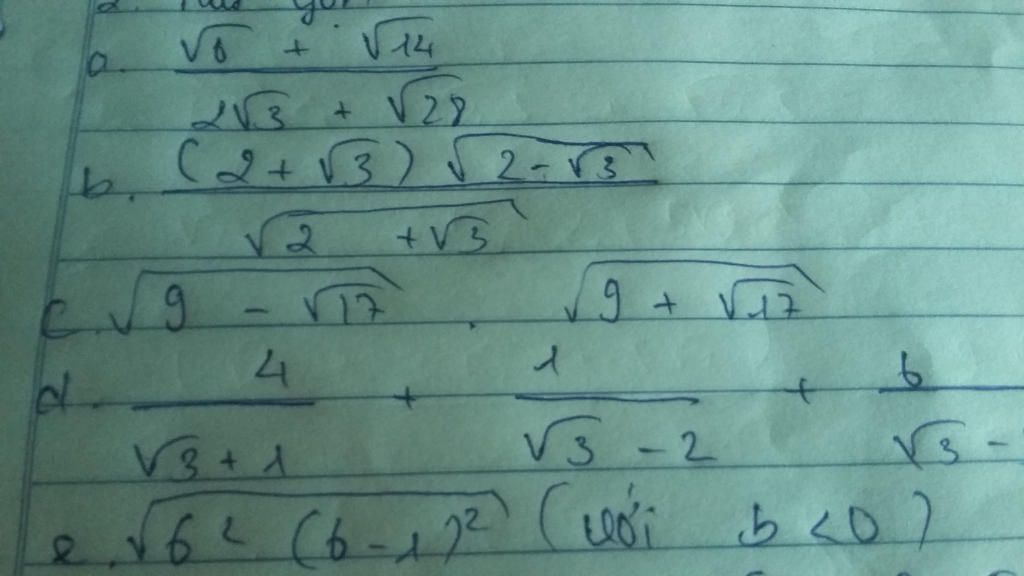 2. Rút gọn
a. (√6 + √14) / (2√3 + √28)
b. ((2 + √3) √(2 - √3)) / √(2 + √3)
c. √(9 - √17) . √(9 + √17)
d. 4 / (√3 + 1) + 1 / (√3 - 2) + 6 / (√3 -
e. √(b² (b - 1)²) (với b < 0)